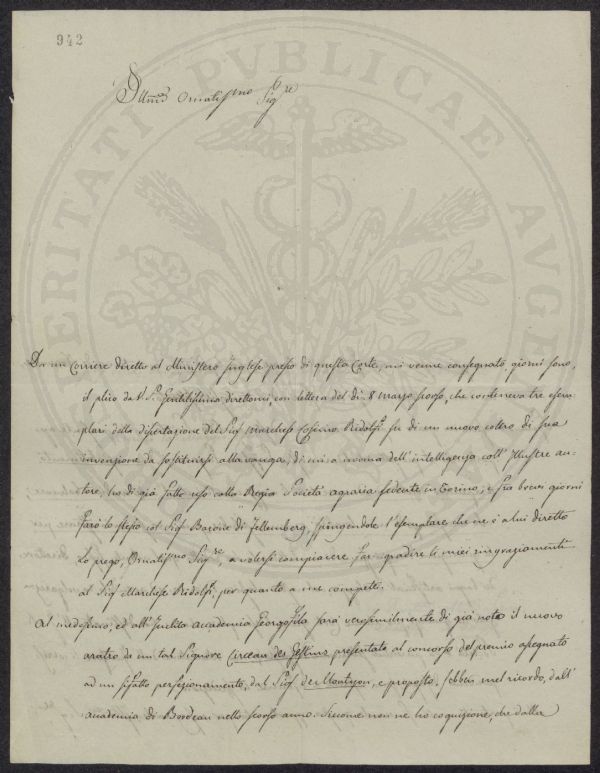 942
Illmo Ornatissmo Sigre
Da un Corriere diretto al Ministero Inglese presso di questa Corte, mi venne consegnato giorni sono,
il plico da V. Sa Gentilissima direttomi, con lettera del dì 8 marzo scorso, che conteneva tre esem-
plari della dissertazione del Sig Marchese Cosimo Ridolfi su di un nuovo coltro di sua
invenzione da sostituirsi alla vanga, di cui a norma dell'intelligenza coll'Illustre au-
tore, ho di già fatto uso colla Regia Società agraria sedente in Torino, e fra brevi giorni
farò lo stesso col Sig Barone di Fellemberg, spingendole l'esemplare che ne è a lui diretto
La prego, Ornatissmo Sigre, a volersi compiacere far gradire li miei ringraziamenti
al Sig Marchese Ridolfi, per quanto a me compete.
Al medesimo, ed all'Inclita Accademia Georgofila sarà verosimilmente di già noto il nuovo
aratro di un tal Signore des presentato al concorso del premio assegnato
ad un sifatto perfezionamento, dal Sig de Montyon, e proposto, sebben mel ricordo, dall'
accademia di Bordeau nello scorso anno. Siccome non ne ho cognizione, che dalla
PVBLICAE
AVGE